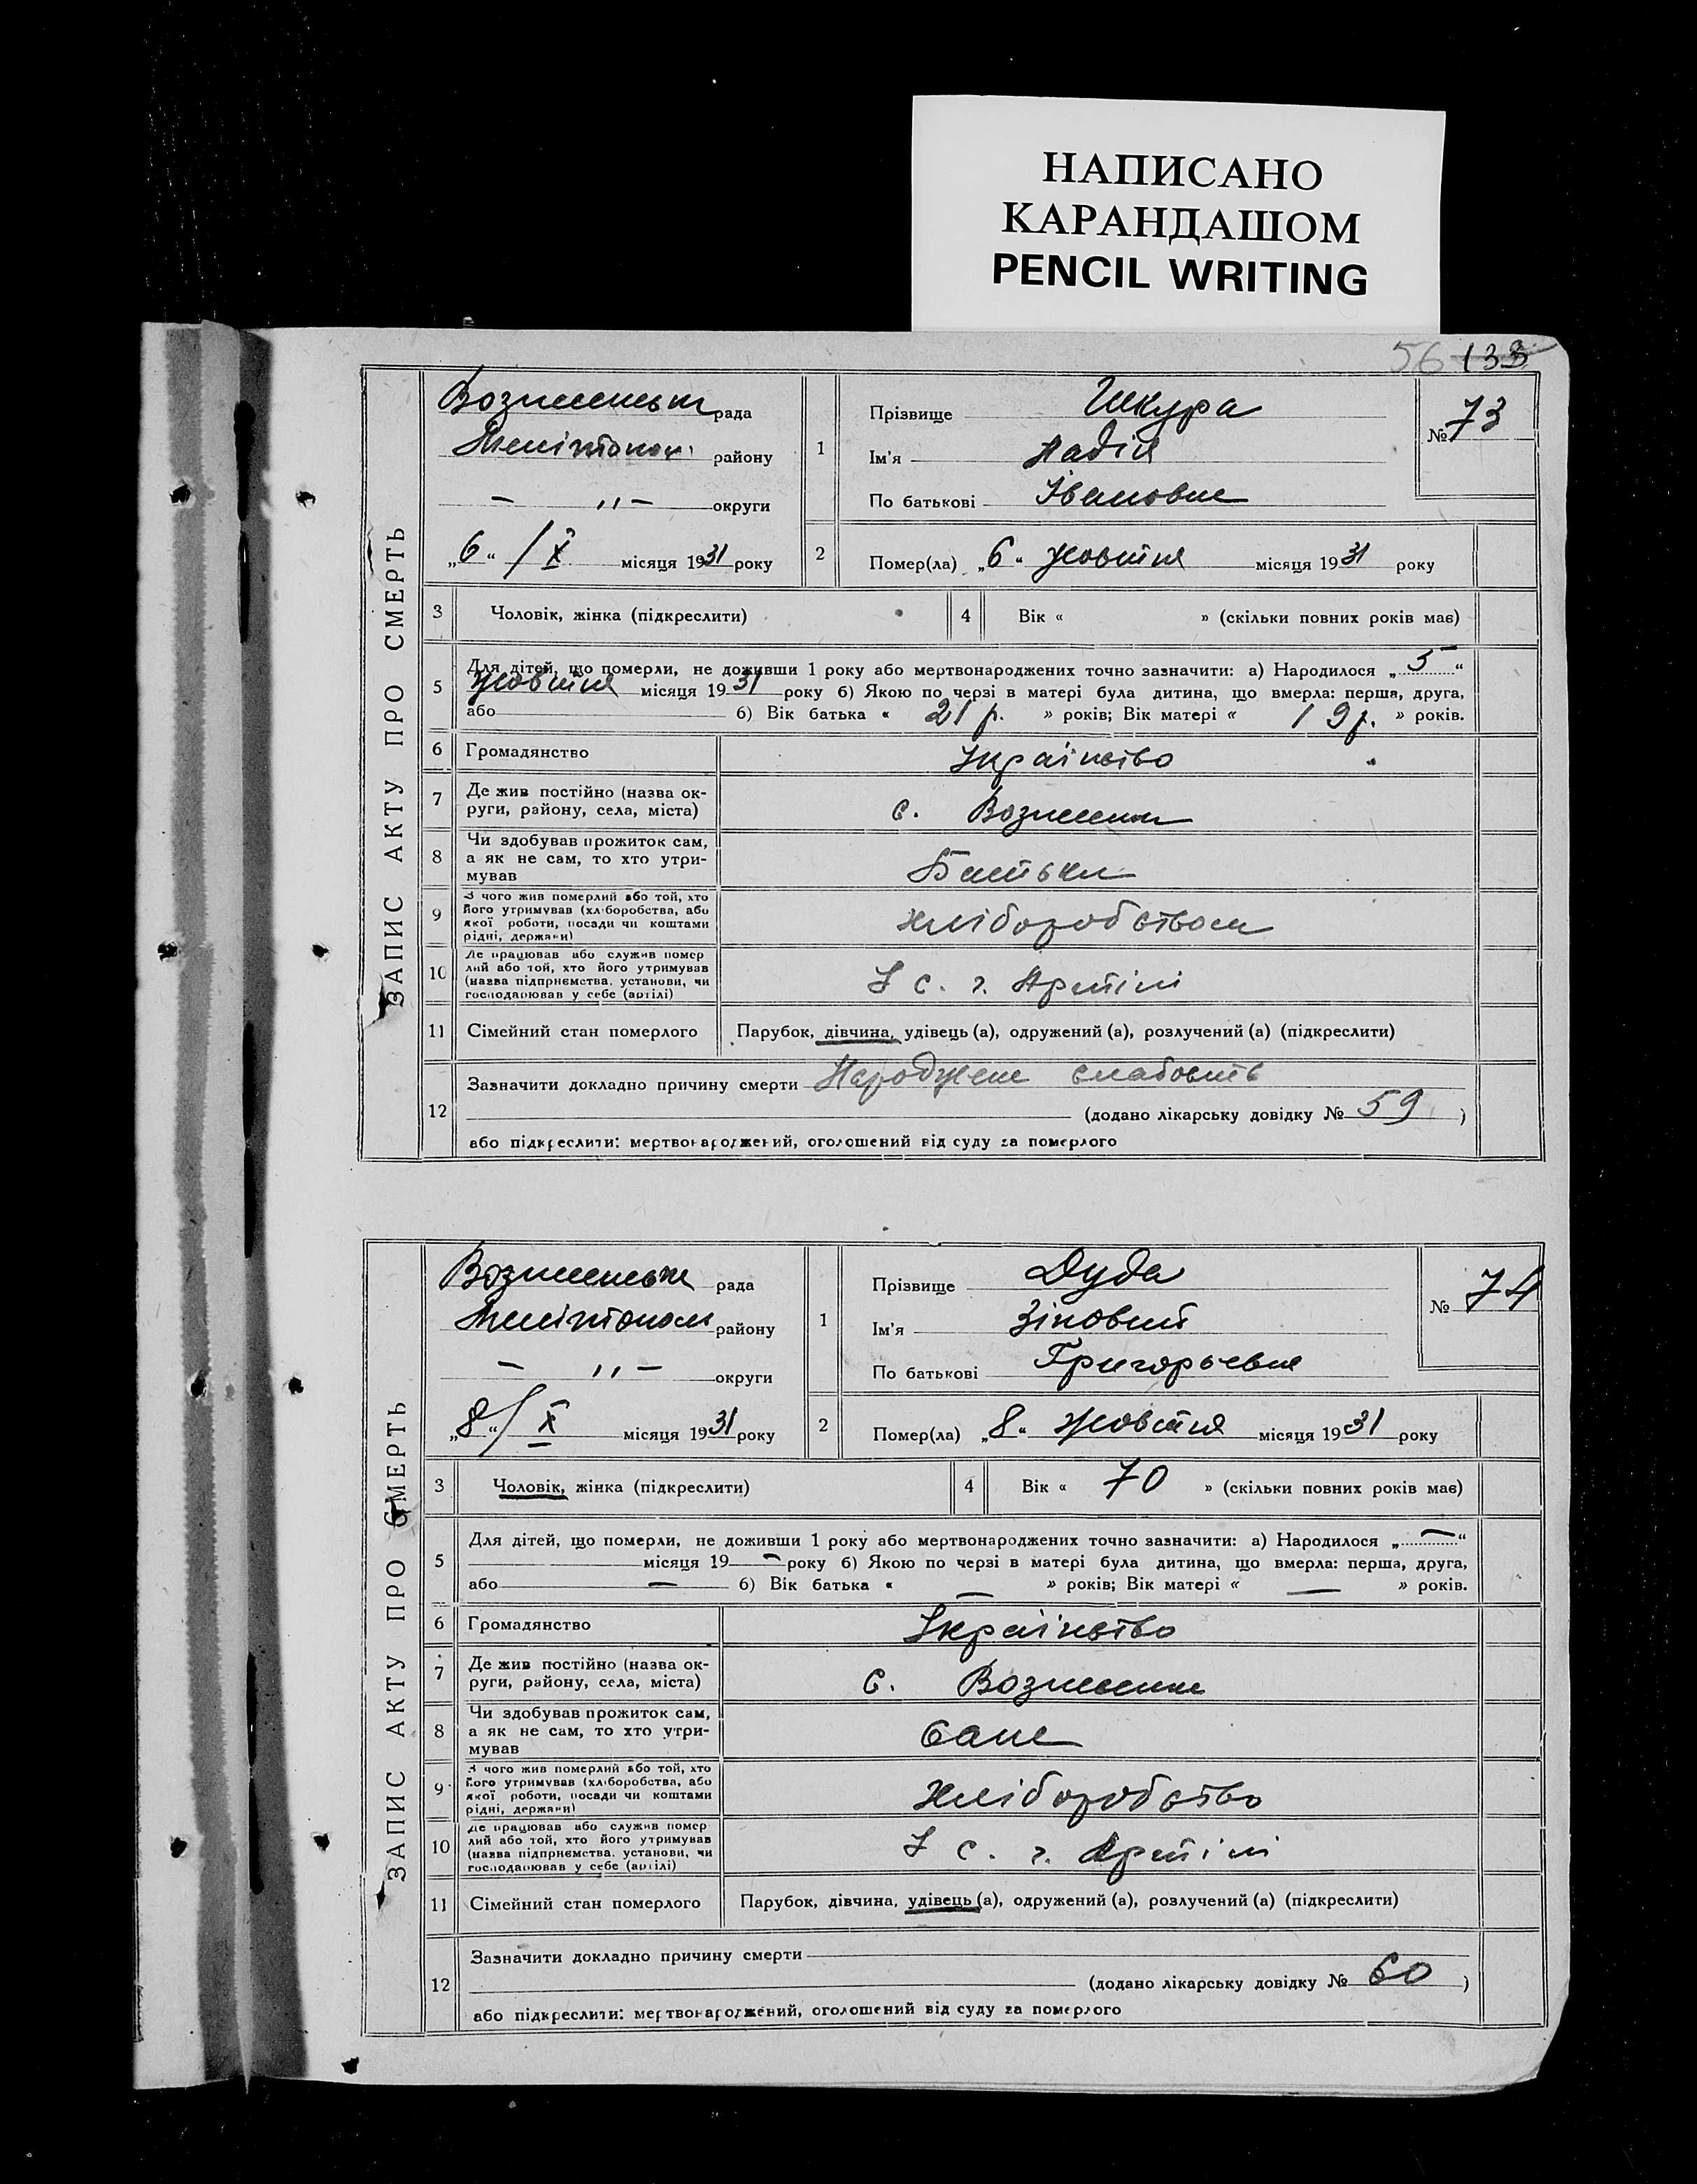 НАПИСАНО
КАРАНДАШОМ
PENCIL WRITING
56 133
ЗАПИС АКТУ ПРО СМЕРТЬ
рада
району
— „ — округи
„6“ / X місяця 1931 року
1
Прізвище Шкура
Ім'я Надія
По батькові Івановна
№ 73
2
Помер(ла) „6“ жовтня місяця 1931 року
3 Чоловік, жінка (підкреслити)
4 Вік « » (скільки повних років має)
5 Для дітей, що померли, не доживши 1 року або мертвонароджених точно зазначити: а) Народилося „5“
жовтня місяця 1931 року б) Якою по черзі в матері була дитина, що вмерла: перша, друга,
або б) Вік батька « 21 р. » років; Вік матері « 19 р. » років.
6 Громадянство Українство
7 Де жив постійно (назва ок-
руги, району, села, міста) с.
8 Чи здобував прожиток сам,
а як не сам, то хто утри-
мував Батьки
9 З чого жив померлий або той, хто
його утримував (хліборобства, або
якої роботи, посади чи коштами
рідні, держави) хліборобством
10 Де працював або служив помер
лий або той, хто його утримував
(назва підприємства. установи, чи
господарював у себе (артілі) У с. г. Артілі
11 Сімейний стан померлого Парубок, дівчина, удівець (а), одружений (а), розлучений (а) (підкреслити)
12 Зазначити докладно причину смерти слабость
(додано лікарську довідку № 59 )
або підкреслити: мертвонароджений, оголошений від суду за померлого
ЗАПИС АКТУ ПРО СМЕРТЬ
рада
району
— „ — округи
„8“ / X місяця 1931 року
1
Прізвище Дуда
Ім'я Зіновий
По батькові
№ 74
2
Помер(ла) „8“ жовтня місяця 1931 року
3 Чоловік, жінка (підкреслити)
4 Вік « 70 » (скільки повних років має)
5 Для дітей, що померли, не доживши 1 року або мертвонароджених точно зазначити: а) Народилося „—“
місяця 19 — року б) Якою по черзі в матері була дитина, що вмерла: перша, друга,
або — б) Вік батька « — » років; Вік матері « — » років.
6 Громадянство Українство
7 Де жив постійно (назва ок-
руги, району, села, міста) с.
8 Чи здобував прожиток сам,
а як не сам, то хто утри-
мував
9 З чого жив померлий або той, хто
його утримував (хліборобства, або
якої роботи, посади чи коштами
рідні, держави) Хліборобство
10 Де працював або служив помер
лий або той, хто його утримував
(назва підприємства. установи, чи
господарював у себе (артілі) У с. г. Артілі
11 Сімейний стан померлого Парубок, дівчина, удівець (а), одружений (а), розлучений (а) (підкреслити)
12 Зазначити докладно причину смерти
(додано лікарську довідку № 60 )
або підкреслити: мертвонароджений, оголошений від суду за померлого